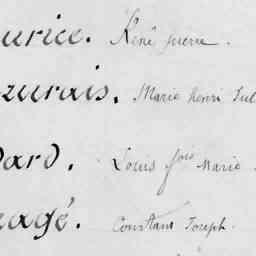 urice. René pierre.
zurais. Marie henri Jul
Dard. Louis fois Marie
zagé. Constant Joseph.